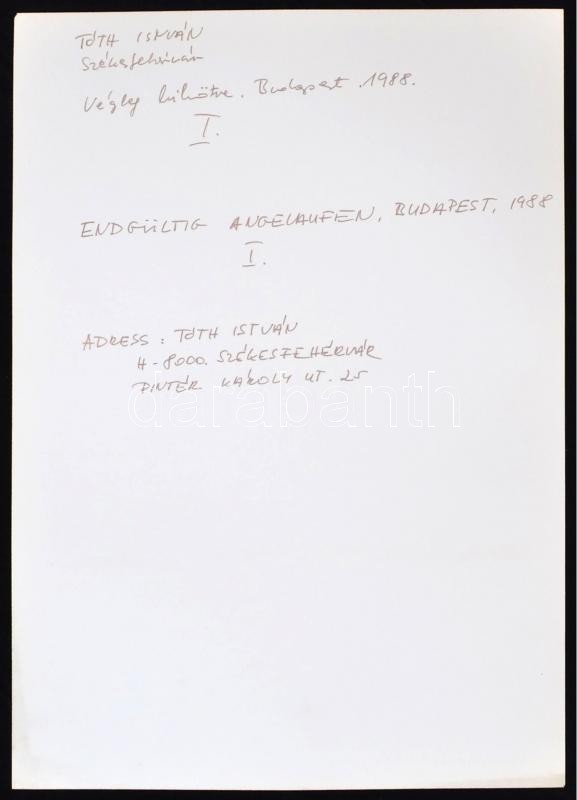 TÓTH ISTVÁN
Székesfehérvár
Végleg kikötve. Budapest. 1988.
I.
ENDGÜLTIG ANGELAUFEN, BUDAPEST, 1988
I.
ADRESS: TÓTH ISTVÁN
H-8000. SZÉKESFEHÉRVÁR
PINTÉR KÁROLY UT. 25
darabanth